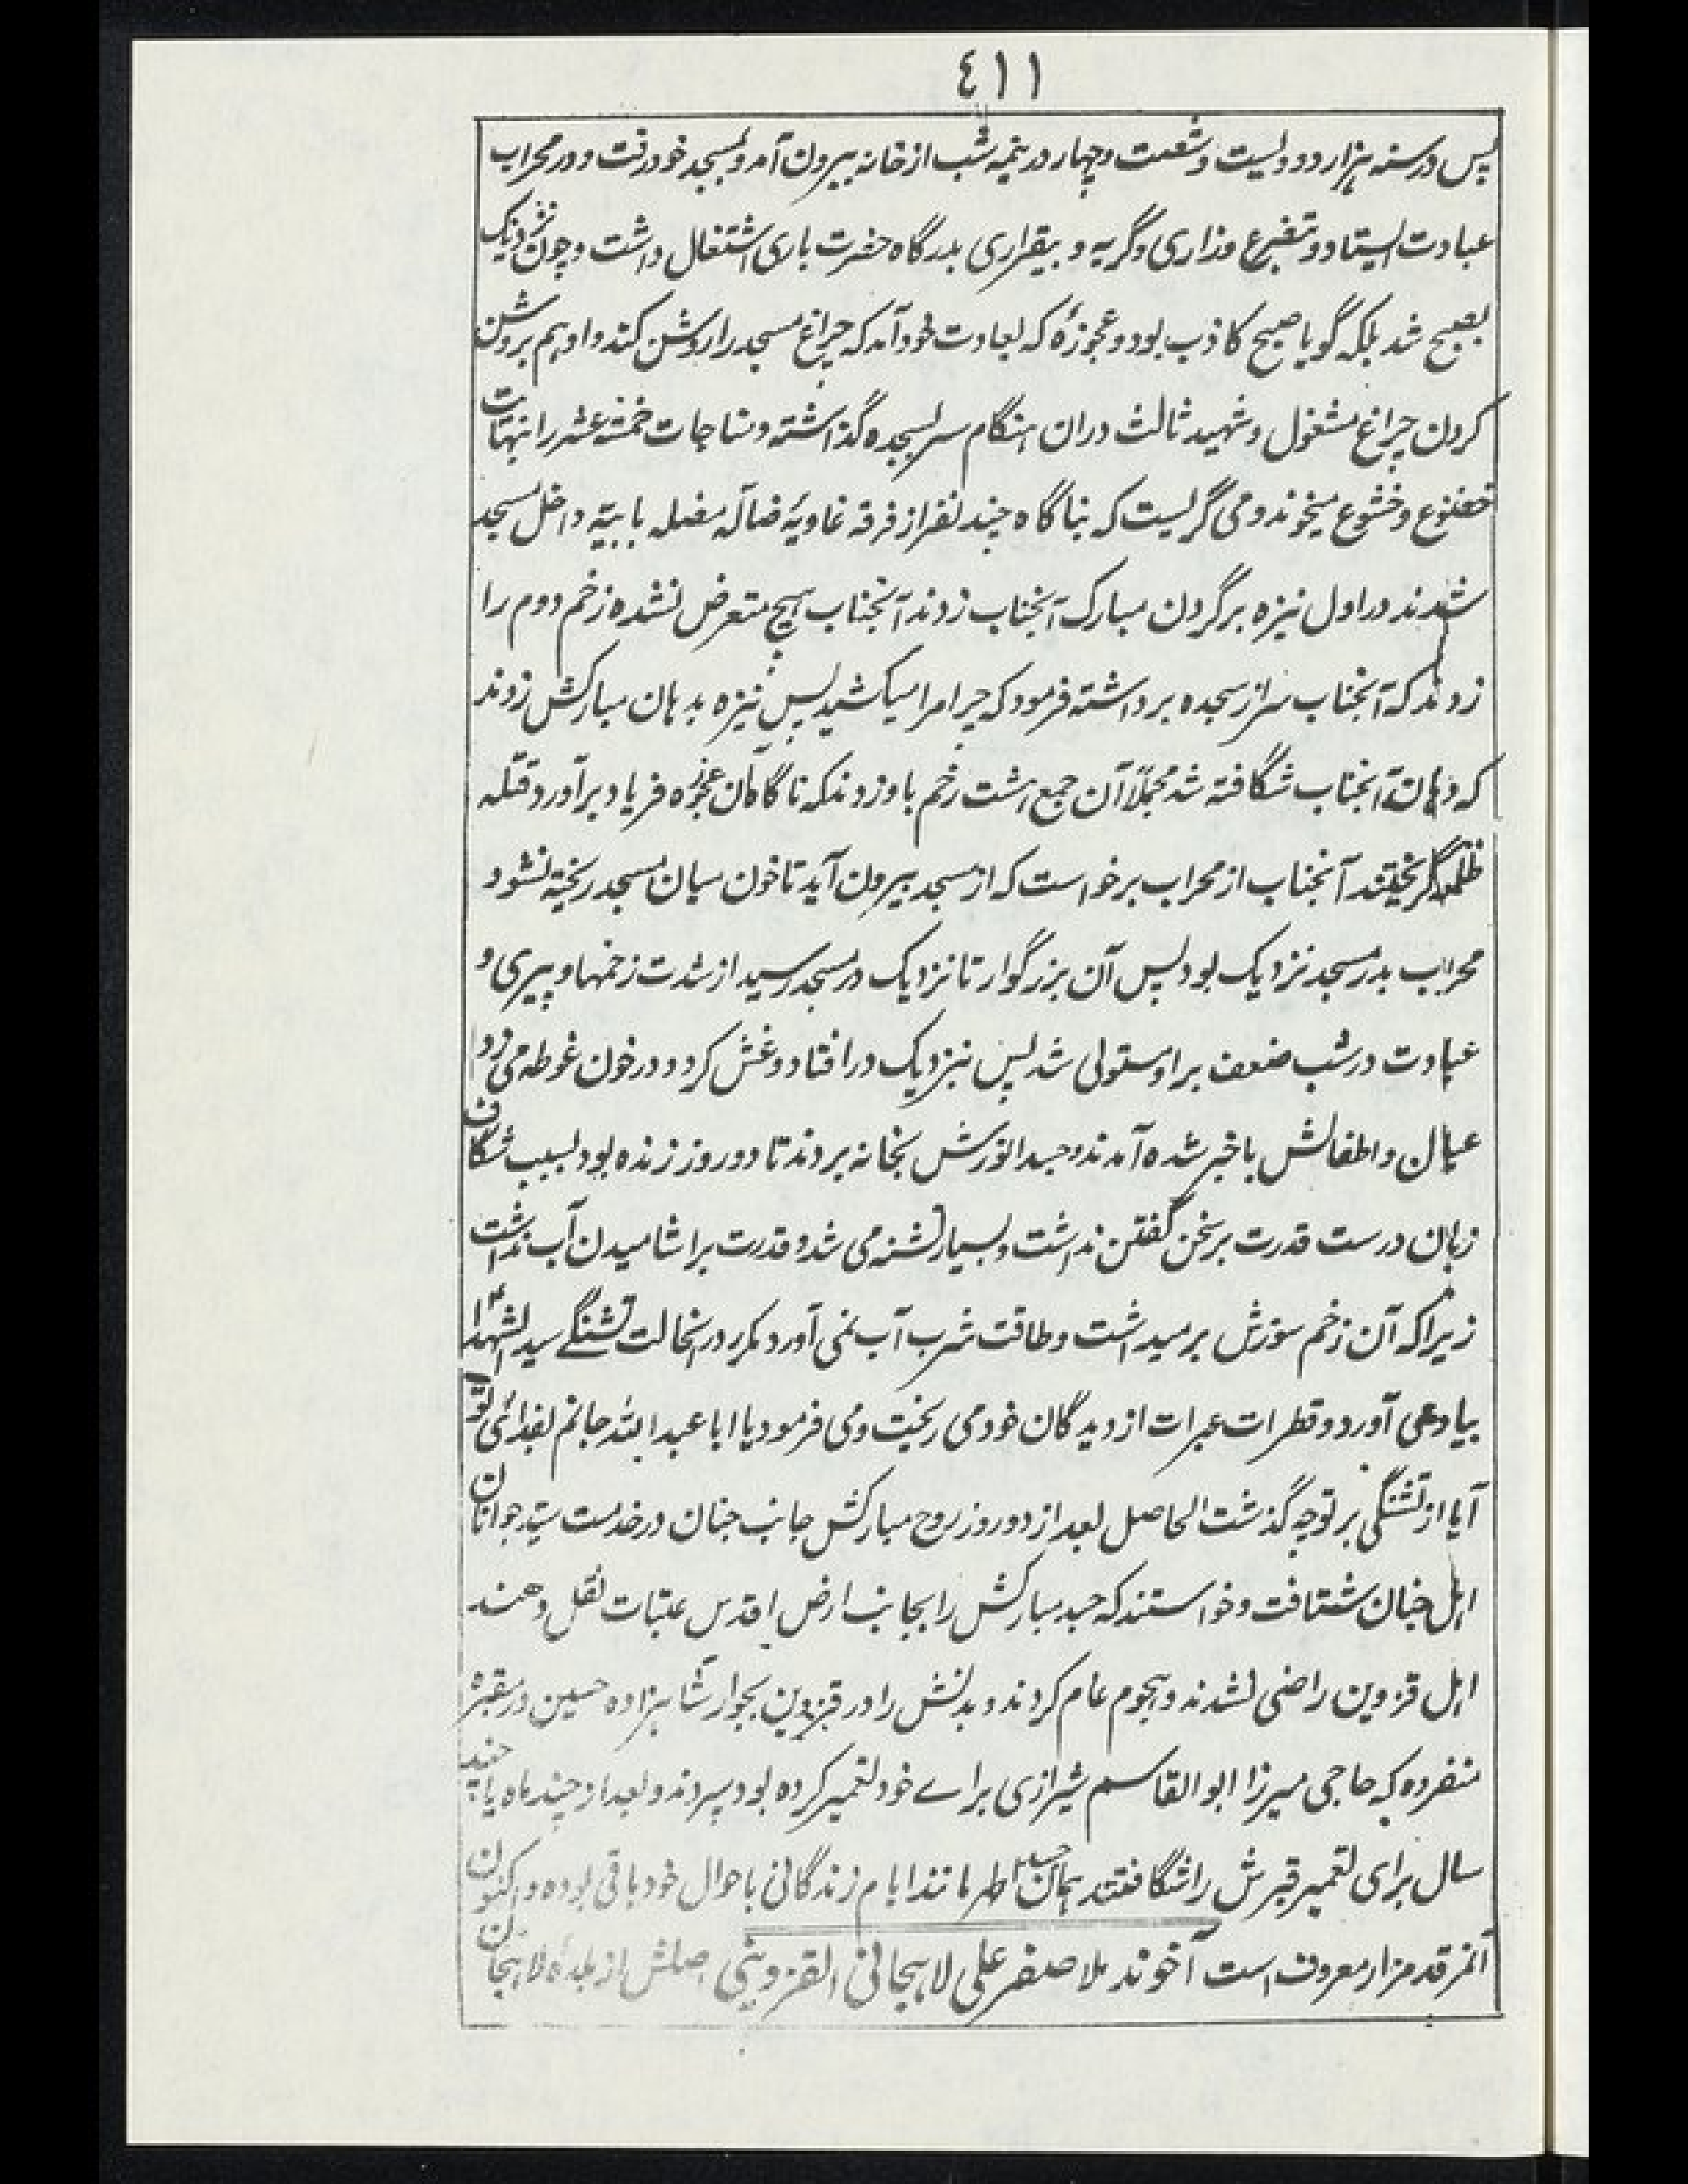 ٤١١
پس در سنه هزار و دویست و شصت و چهار در نیمه شب از خانه بیرون آمد و بمسجد خود رفت و در محراب
عبادت ایستاد و تضرع و زاری و گریه و بیقراری بدرگاه حضرت باری اشتغال داشت و چون نزدیک
بصبح شد بلکه گویا صبح کاذب بود و عجوزهٔ که بعادت خود آمد که چراغ مسجد را روشن کند و او هم بروشن
کردن چراغ مشغول و شهید ثالث دران هنگام سر بسجده گذاشته و مناجات خمسة عشر را بنهایت
خضوع و خشوع میخوند و می گریست که بناگاه چند نفر از فرقه غاویهٔ ضالّه مضله بابیّه داخل مسجد
شدند در اول نیزه بر گردن مبارک آنجناب زدند آنجناب هیچ متعرض نشده زخم دوم را
زدند که آنجناب سر از سجده برداشته فرمود که چرا مرا میکشید پس نیزه بدهان مبارکش زدند
که دهان آنجناب شگافته شد مجملاً آن جمع هشت زخم باو زدند که ناگاهان عجوزه فریاد برآورد قتله
ظلمه گریختند آنجناب از محراب برخواست که از مسجد بیرون آید تا خون میان مسجد ریخته نشود و
محراب بدر مسجد نزدیک بود پس آن بزرگوار تا نزدیک در مسجد رسید از شدت زخمها و پیری و
عبادت در شب ضعف بر او مستولی شد پس نزدیک در افتاد و غش کرد و در خون غوطه می زد
عیال و اطفالش باخبر شده آمدند و جسد انورش بخانه بردند تا دو روز زنده بود بسبب شگاف
زبان درست قدرت بر سخن گفتن نداشت و بسیار تشنه می شد و قدرت بر اشامیدن آب نداشت
زیرا که آن زخم سوزش بر میداشت و طاقت شرب آب نمی آورد و مکرر در انحالت تشنگے سید الشهدا
بیاد می آورد و قطرات عبرات از دیدگان خود می ریخت و می فرمود یا ابا عبدالله جانم بفدای تو
آیا از تشنگی بر تو چه گذشت الحاصل بعد از دو روز روح مبارکش جانب جنان در خدمت سیّد جوانان
اهل جنان شتافت و خواستند که جسد مبارکش را بجانب ارض اقدس عتبات نقل دهند
اهل قزوین راضی نشدند و هجوم عام کردند و بدنش را در قزوین بجوار شاهزاده حسین در مقبره
منفرده که حاجی میرزا ابوالقاسم شیرازی براے خود تعمیر کرده بود سپردند و بعد از چند ماه یا چند
سال برای تعمیر قبرش را شگافتند همان جسد اطهر مانند ایام زندگانی باحوال خود باقی بوده و اکنون
آنمرقد مزار معروف است آخوند ملا صفر علی لاهیجانی القزوینی اصلش از بلدهٔ لاهیجان